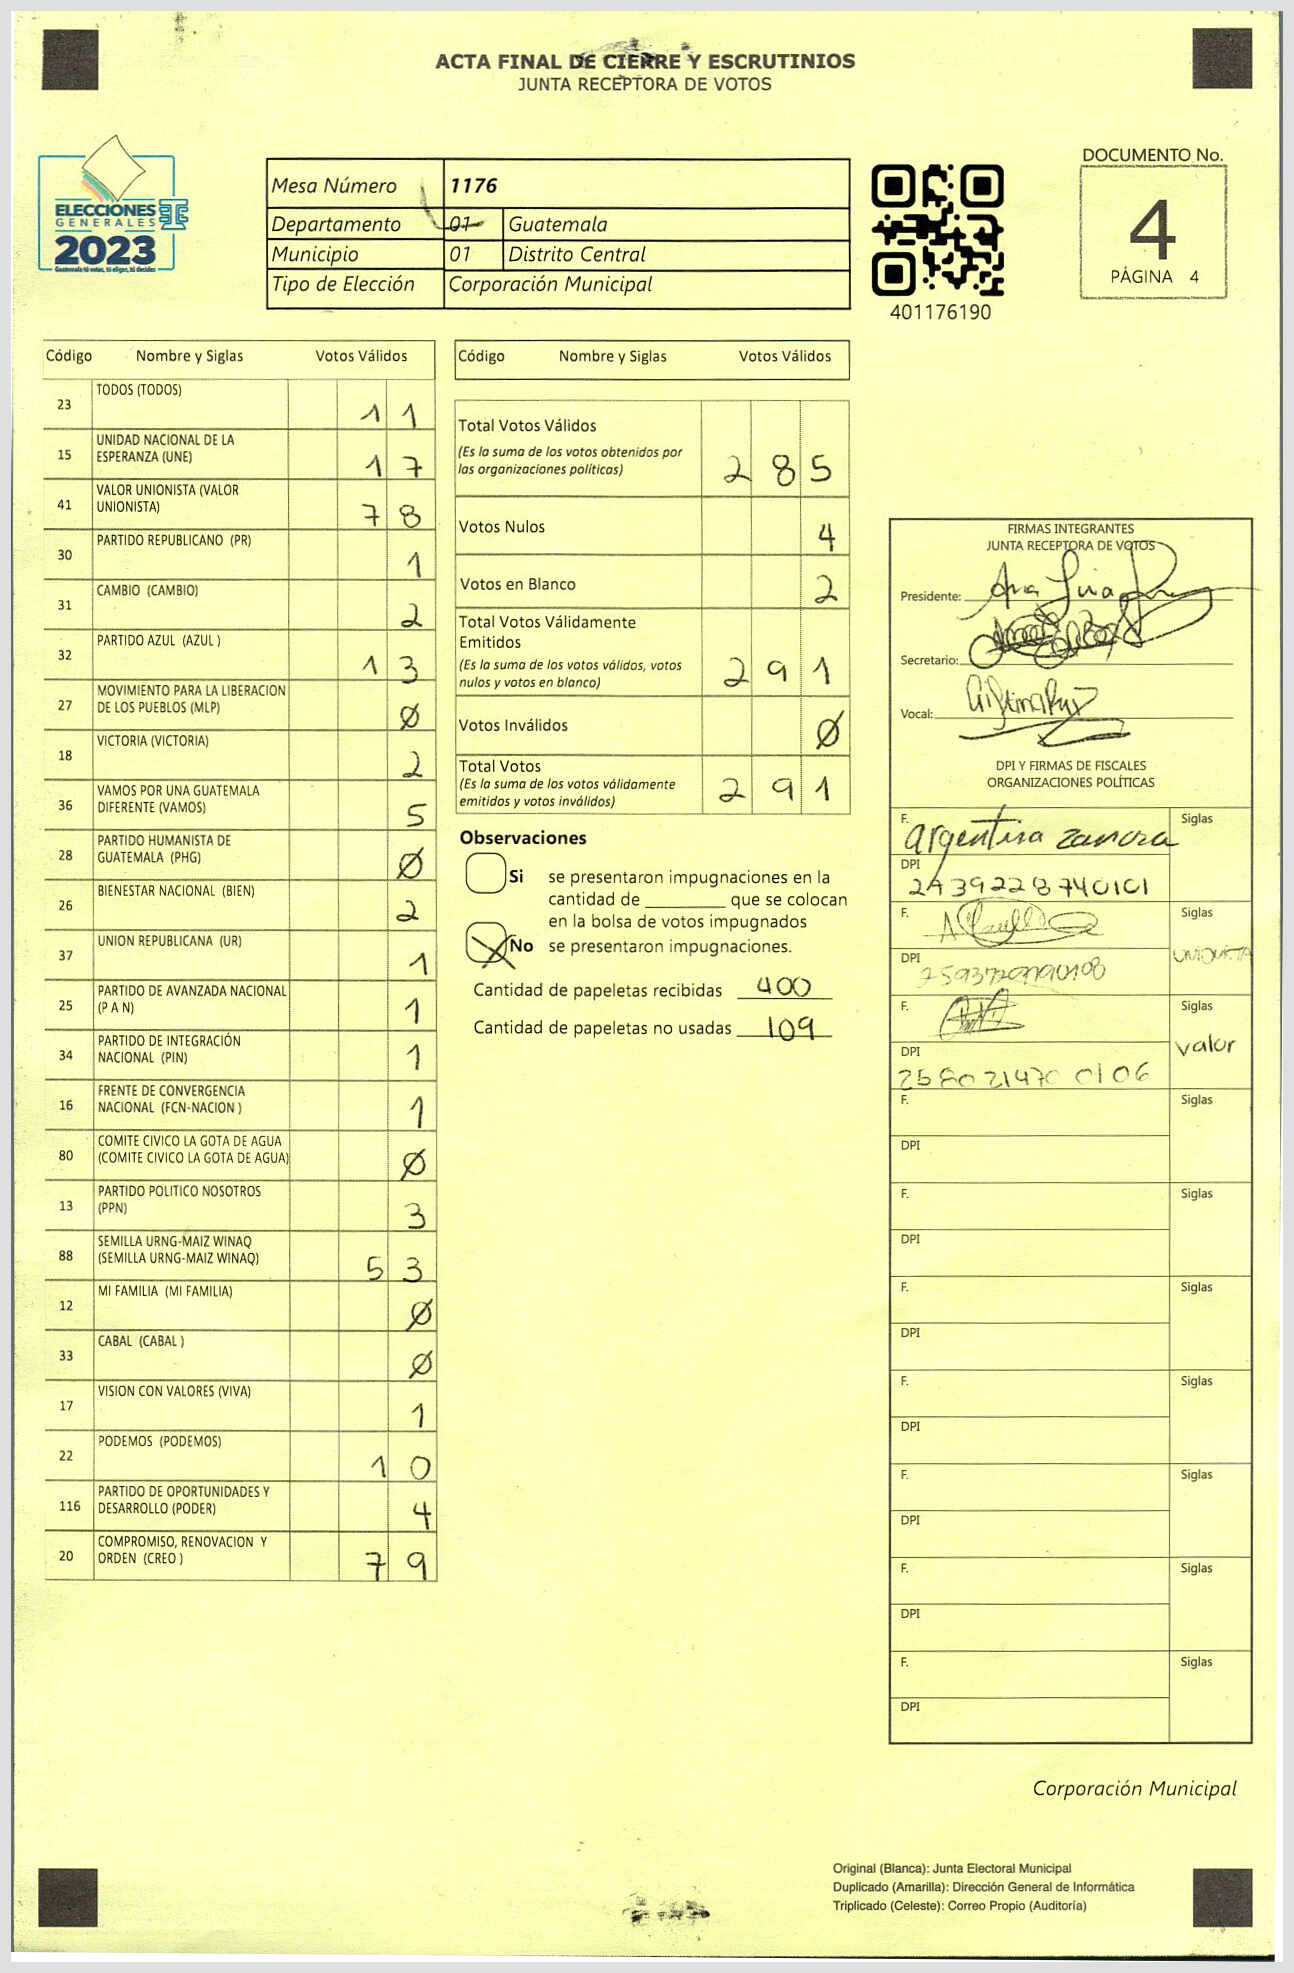 ACTA FINAL DE CIERRE Y ESCRUTINIOS
JUNTA RECEPTORA DE VOTOS
ELECCIONES
GENERALES
2023
Guatemala tú votas, tú eliges, tú decides
Mesa Número 1176
Departamento 01 Guatemala
Municipio 01 Distrito Central
Tipo de Elección Corporación Municipal
401176190
DOCUMENTO No.
4
PÁGINA 4
Código Nombre y Siglas Votos Válidos
23 TODOS (TODOS) 11
15 UNIDAD NACIONAL DE LA
ESPERANZA (UNE) 17
41 VALOR UNIONISTA (VALOR
UNIONISTA) 78
30 PARTIDO REPUBLICANO (PR) 1
31 CAMBIO (CAMBIO) 2
32 PARTIDO AZUL (AZUL ) 13
27 MOVIMIENTO PARA LA LIBERACION
DE LOS PUEBLOS (MLP) Ø
18 VICTORIA (VICTORIA) 2
36 VAMOS POR UNA GUATEMALA
DIFERENTE (VAMOS) 5
28 PARTIDO HUMANISTA DE
GUATEMALA (PHG) Ø
26 BIENESTAR NACIONAL (BIEN) 2
37 UNION REPUBLICANA (UR) 1
25 PARTIDO DE AVANZADA NACIONAL
(P A N) 1
34 PARTIDO DE INTEGRACIÓN
NACIONAL (PIN) 1
16 FRENTE DE CONVERGENCIA
NACIONAL (FCN-NACION ) 1
80 COMITE CIVICO LA GOTA DE AGUA
(COMITE CIVICO LA GOTA DE AGUA) Ø
13 PARTIDO POLITICO NOSOTROS
(PPN) 3
88 SEMILLA URNG-MAIZ WINAQ
(SEMILLA URNG-MAIZ WINAQ) 53
12 MI FAMILIA (MI FAMILIA) Ø
33 CABAL (CABAL ) Ø
17 VISION CON VALORES (VIVA) 1
22 PODEMOS (PODEMOS) 10
116 PARTIDO DE OPORTUNIDADES Y
DESARROLLO (PODER) 4
20 COMPROMISO, RENOVACION Y
ORDEN (CREO ) 79
Código Nombre y Siglas Votos Válidos
Total Votos Válidos
(Es la suma de los votos obtenidos por
las organizaciones políticas) 285
Votos Nulos 4
Votos en Blanco 2
Total Votos Válidamente
Emitidos
(Es la suma de los votos válidos, votos
nulos y votos en blanco) 291
Votos Inválidos Ø
Total Votos
(Es la suma de los votos válidamente
emitidos y votos inválidos) 291
Observaciones
Si se presentaron impugnaciones en la
cantidad de ________ que se colocan
en la bolsa de votos impugnados
No se presentaron impugnaciones.
Cantidad de papeletas recibidas 400
Cantidad de papeletas no usadas 109
FIRMAS INTEGRANTES
JUNTA RECEPTORA DE VOTOS
Presidente:
Secretario:
Vocal:
DPI Y FIRMAS DE FISCALES
ORGANIZACIONES POLÍTICAS
F. argentina zamora Siglas
DPI 2439228740101
F. Siglas
DPI
F. Siglas
valor
DPI 2580214700106
F. Siglas
DPI
F. Siglas
DPI
F. Siglas
DPI
F. Siglas
DPI
F. Siglas
DPI
F. Siglas
DPI
F. Siglas
DPI
Corporación Municipal
Original (Blanca): Junta Electoral Municipal
Duplicado (Amarilla): Dirección General de Informática
Triplicado (Celeste): Correo Propio (Auditoría)